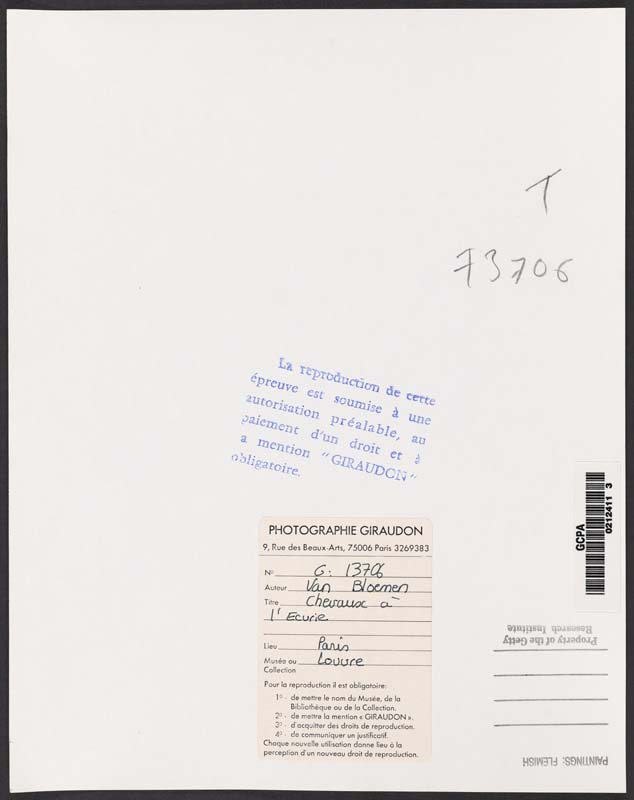 T
73706
La reproduction de cette
épreuve est soumise à une
autorisation préalable, au
paiement d'un droit et à
a mention "GIRAUDON"
obligatoire.
PHOTOGRAPHIE GIRAUDON
9, Rue des Beaux-Arts, 75006 Paris 3269383
No G. 13706
Auteur Van Bloemen
Titre Chevaux à
l'Ecurie
Lieu Paris
Musée ou Louvre
Collection
Pour la reproduction il est obligatoire:
1o - de mettre le nom du Musée, de la
Bibliothèque ou de la Collection.
2o - de mettre la mention « GIRAUDON ».
3o - d'acquitter des droits de reproduction.
4o - de communiquer un justificatif.
Chaque nouvelle utilisation donne lieu à la
perception d'un nouveau droit de reproduction.
GCPA
0212411 3
Property of the Getty
Research Institute
PAINTINGS: FLEMISH